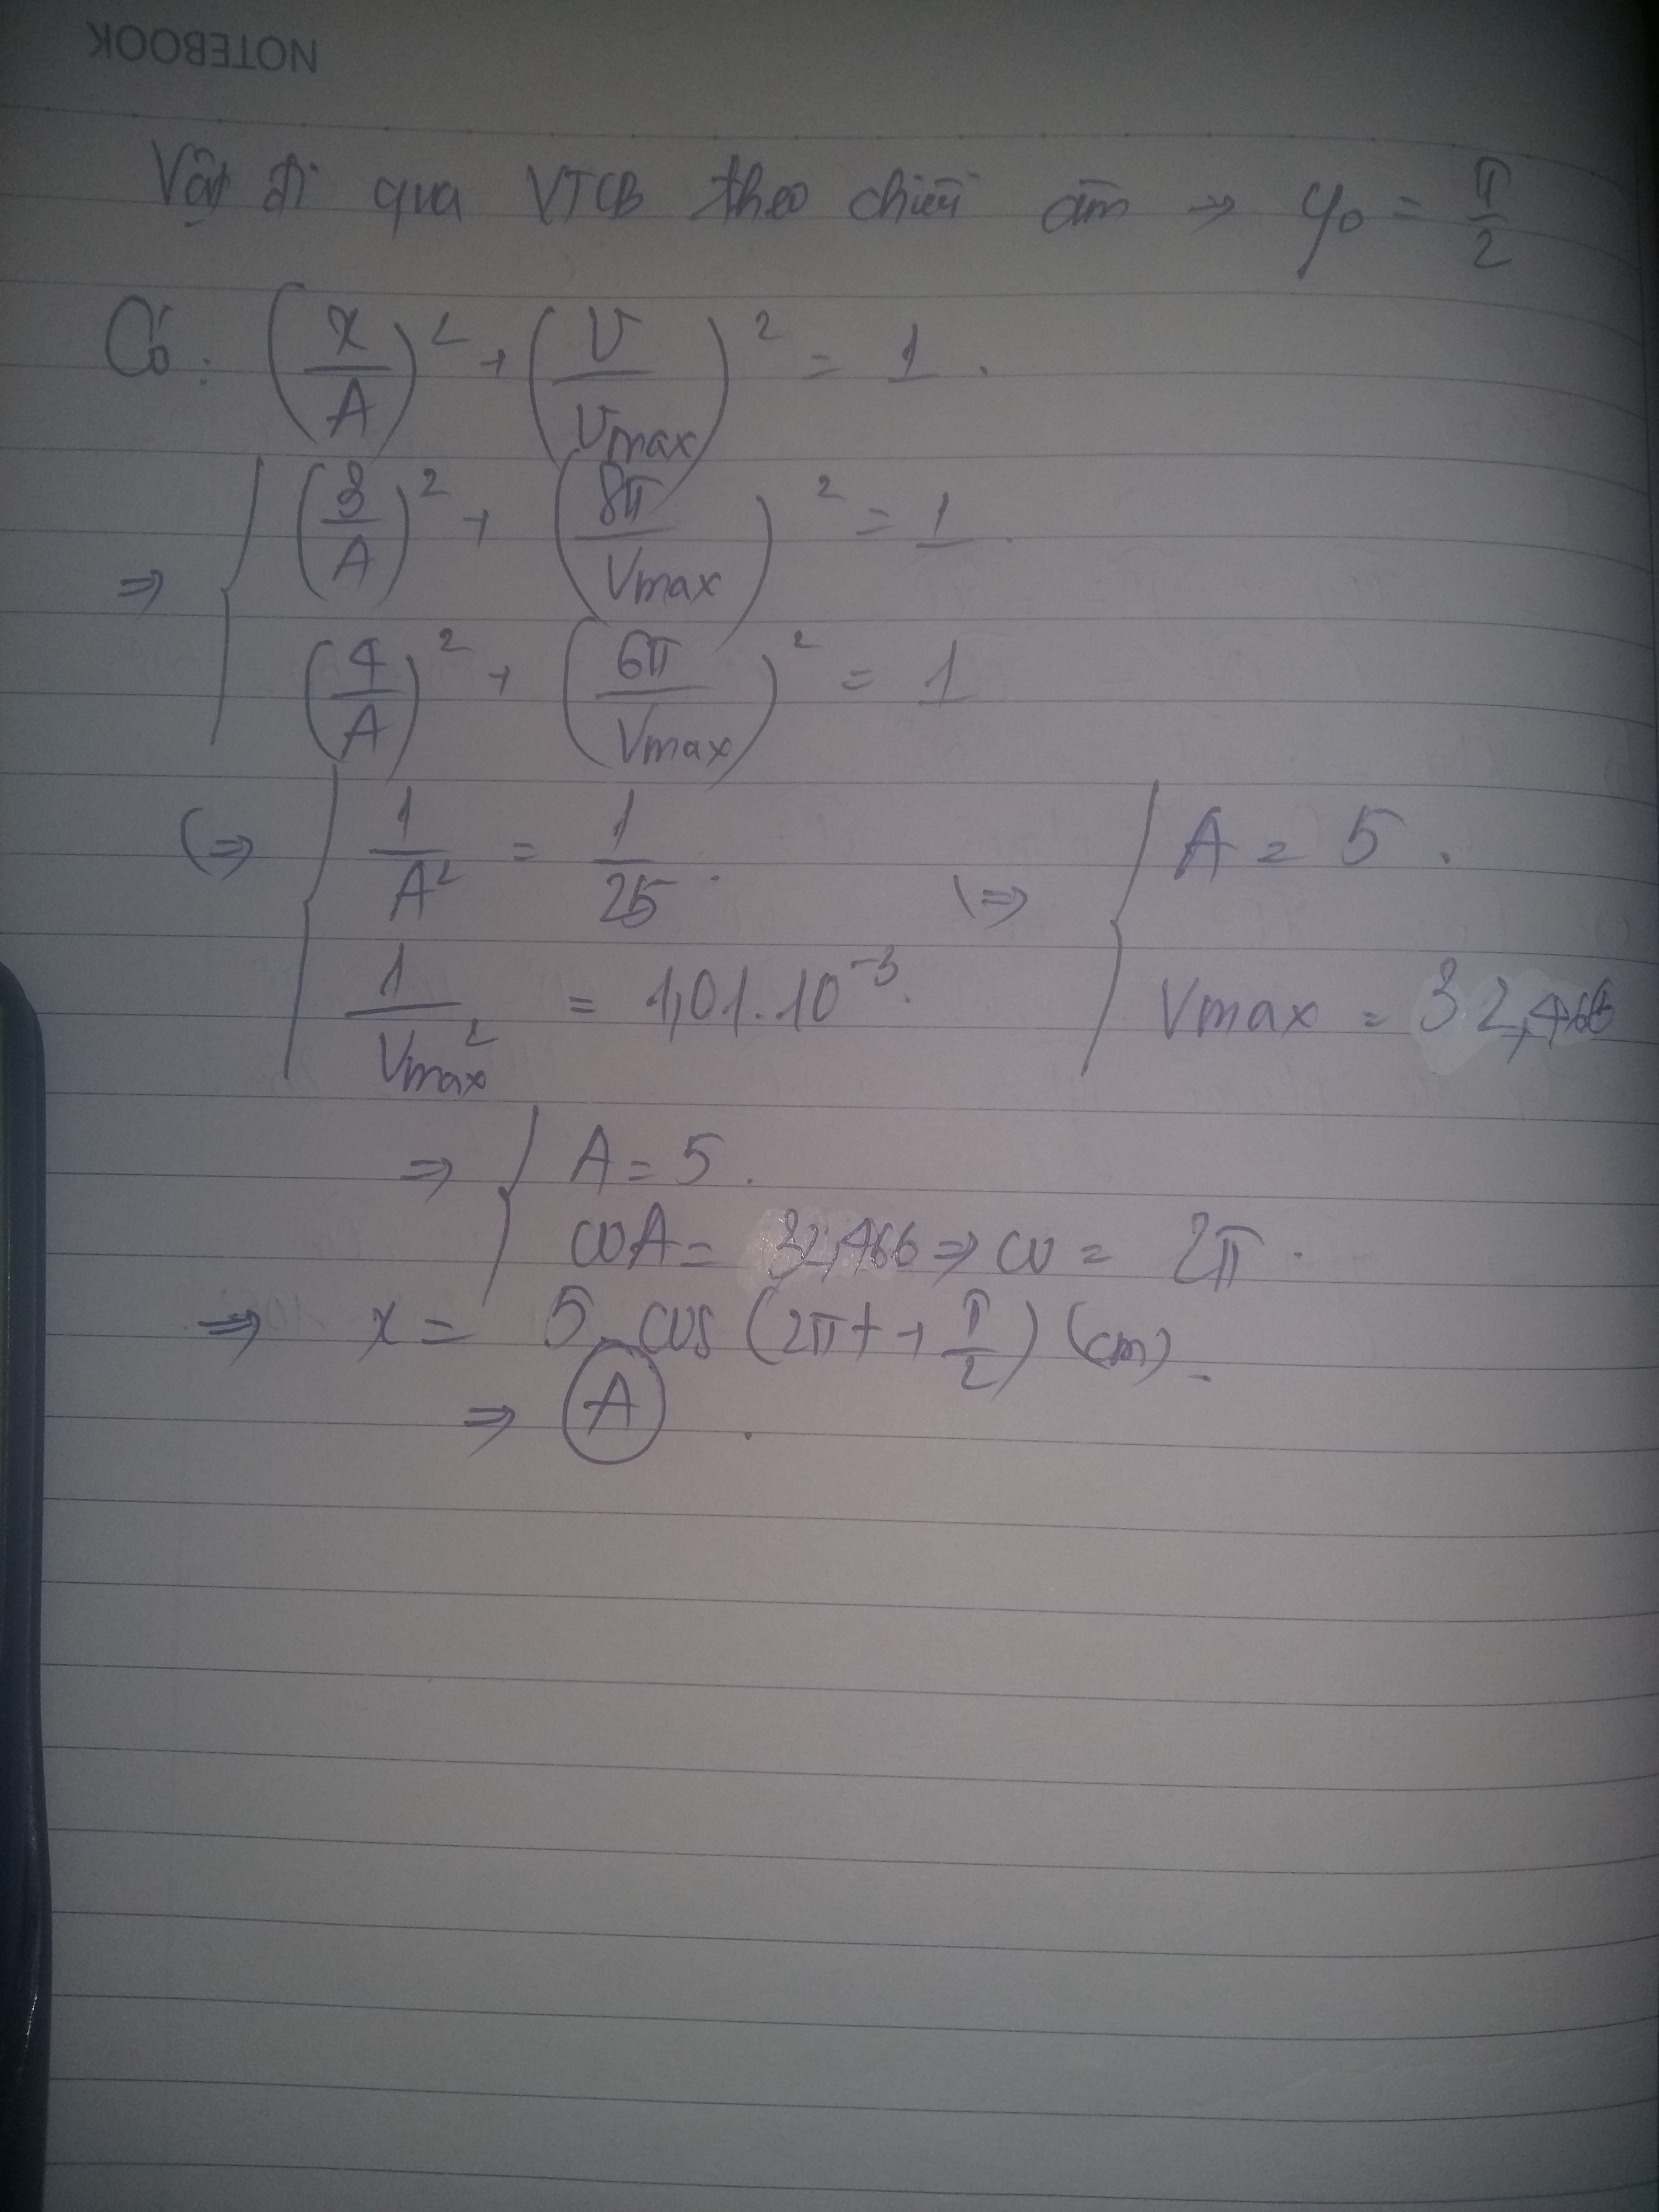 NOTEBOOK
Vật đi qua VTCB theo chiều âm ⇒ φ₀ = π/2
Có: (x/A)² + (v/vmax)² = 1.
⇒ { (3/A)² + (8π/Vmax)² = 1.
(4/A)² + (6π/Vmax)² = 1
(⇒ { 1/A² = 1/25. (⇒ { A = 5.
1/Vmax² = 1,01.10⁻³. Vmax = 32,466
⇒ { A = 5.
ωA = 32,466 ⇒ ω = 2π.
⇒ x = 5 cos (2πt + π/2) (cm).
⇒ A.